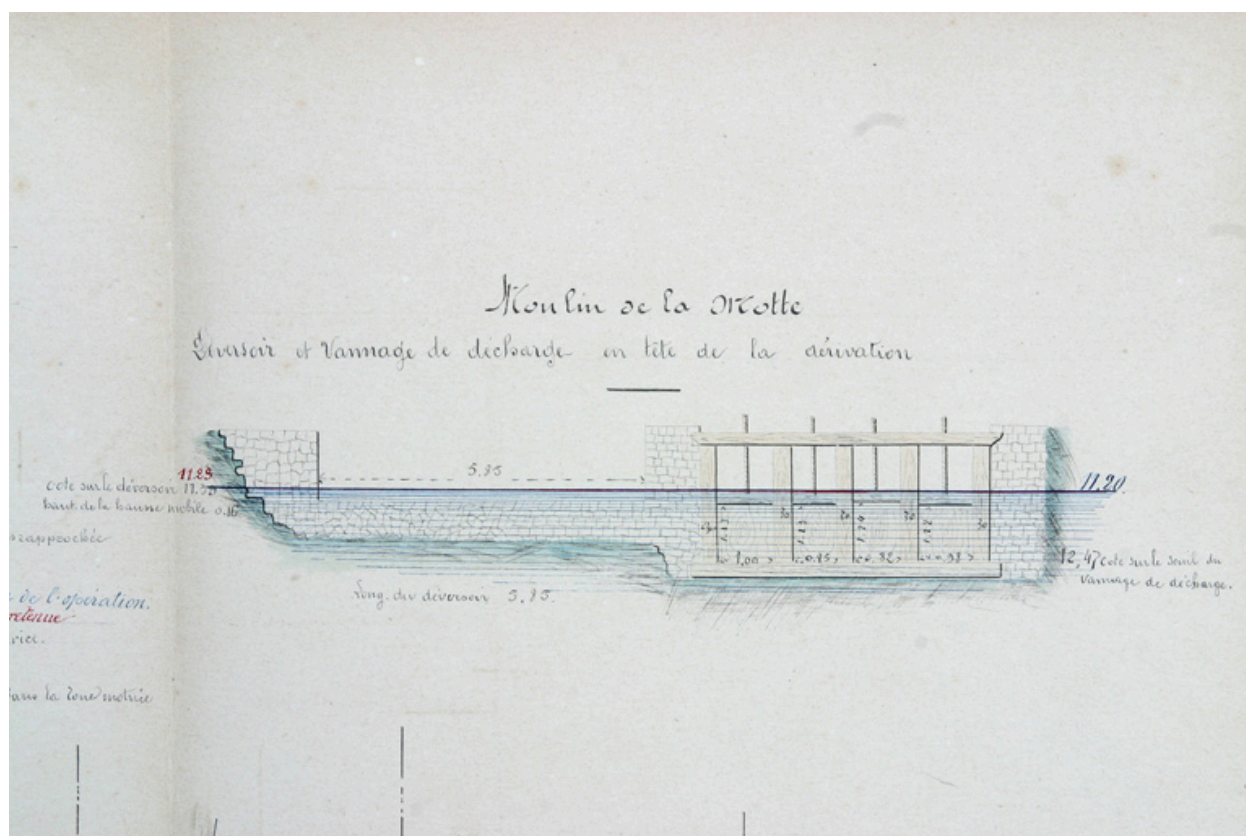 Moulin de la Motte
Déversoir et Vannage de décharge en tête de la dérivation
5.85
11.23
cote sur le déversoir
haut. de la hausse mobile 0.16
11.20
rapprochée
1.00
0.85
0.82
0.98
12,47 cote sur le seuil du
vannage de décharge.
Long. du déversoir 5.85.
de l'opération.
retenue
dans la zone motrice